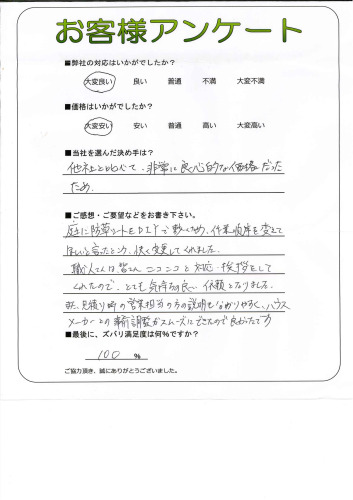 お客様アンケート
■弊社の対応はいかがでしたか?
大変良い 良い 普通 不満 大変不満
■価格はいかがでしたか?
大変安い 安い 普通 高い 大変高い
■当社を選んだ決め手は?
他社と比べて、非常に良心的な価格だった
ため。
■ご感想・ご要望などをお書き下さい。
庭に防草シートをDIYで敷くため、作業順序を変えて
ほしいと言ったところ、快く変更してくれました。
職人さんは皆さんニコニコと対応・挨拶をして
くれたので、とても気持ちの良い依頼となりました。
また、見積り時の営業担当の方の説明も分かりやすく、ハウス
メーカーとの事前調整がスムーズにできたので良かったです
■最後に、ズバリ満足度は何%ですか?
100 %
ご協力頂き、誠にありがとうございました。